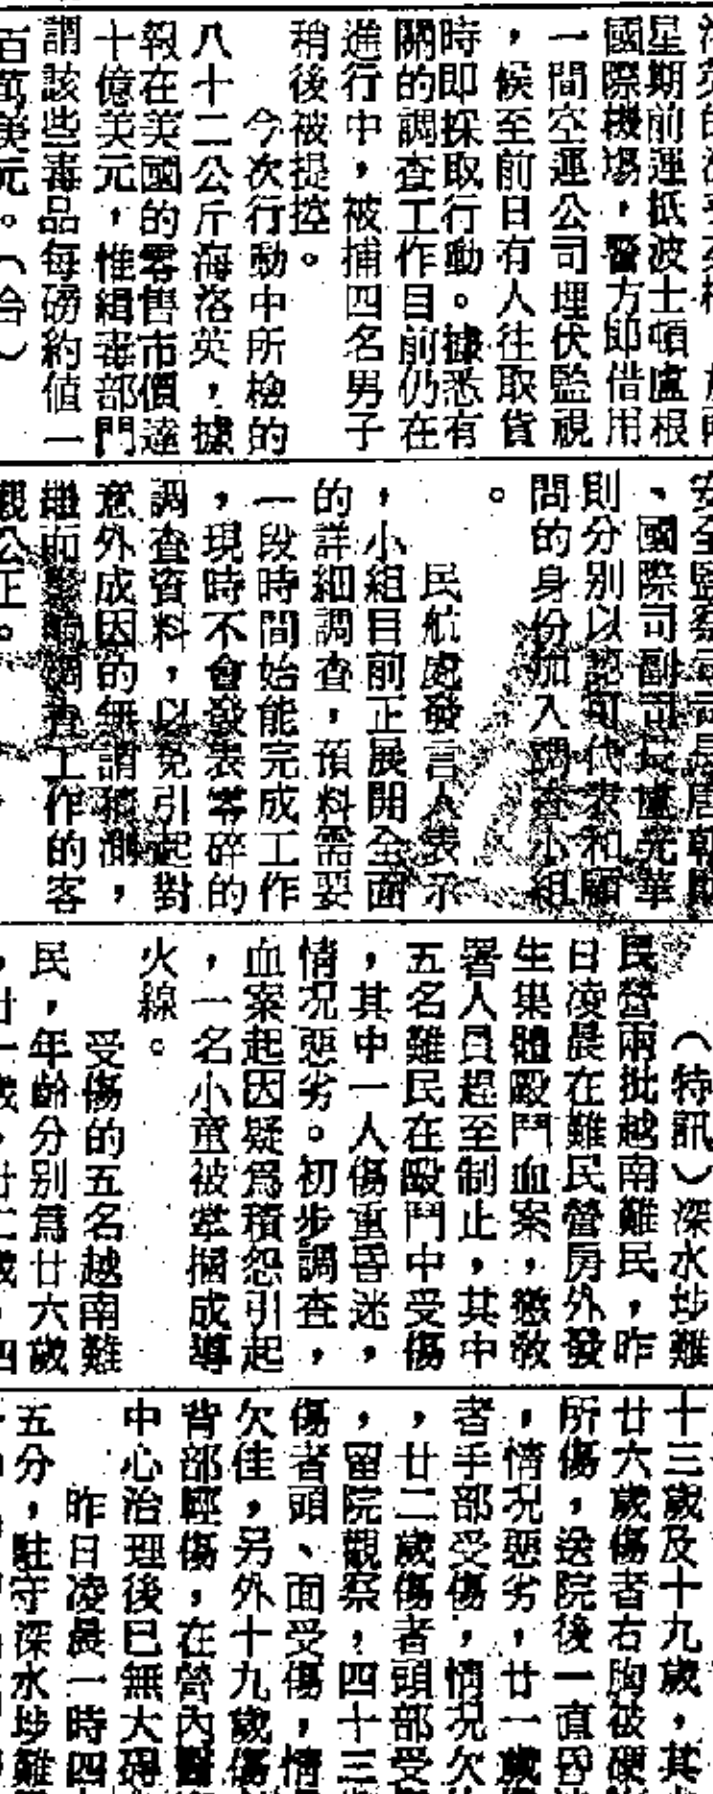 星期前運抵波士頓盧根
國際機場，警方即借用
一間空運公司埋伏監視
，候至前日有人往取貨
時即採取行動。據悉有
關的調查工作目前仍在
進行中，被捕四名男子
稍後被提控。
今次行動中所檢的
八十二公斤海洛英，據
報在美國的零售市價達
十億美元，惟緝毒部門
謂該些毒品每磅約值一
百萬美元。（合）
安全監察司司長唐朝
、國際司副司長盧光華
則分別以認可代表和顧
問的身份加入調查小組
。
民航處發言人表示
，小組目前正展開全面
的詳細調查，預料需要
一段時間始能完成工作
，現時不會發表零碎的
調查資料，以免引起對
意外成因的無謂猜測，
繼而影響調查工作的客
觀公正。
（特訊）深水埗難
民營兩批越南難民，昨
日凌晨在難民營房外發
生集體毆鬥血案，懲教
署人員趕至制止，其中
五名難民在毆鬥中受傷
，其中一人傷重昏迷，
情況惡劣。初步調查，
血案起因疑為積怨引起
，一名小童被掌摑成導
火線。
受傷的五名越南難
民，年齡分別為廿六歲
，廿一歲，廿二歲，四
十三歲及十九歲，其
廿六歲傷者右胸被硬
所傷，送院後一直昏
，情況惡劣，廿一歲
者手部受傷，情況欠
，廿二歲傷者頭部受
，留院觀察，四十三
傷者頭、面受傷，情
欠佳，另外十九歲傷
背部輕傷，在營內醫
中心治理後已無大碍
昨日凌晨一時四
五分，駐守深水埗難